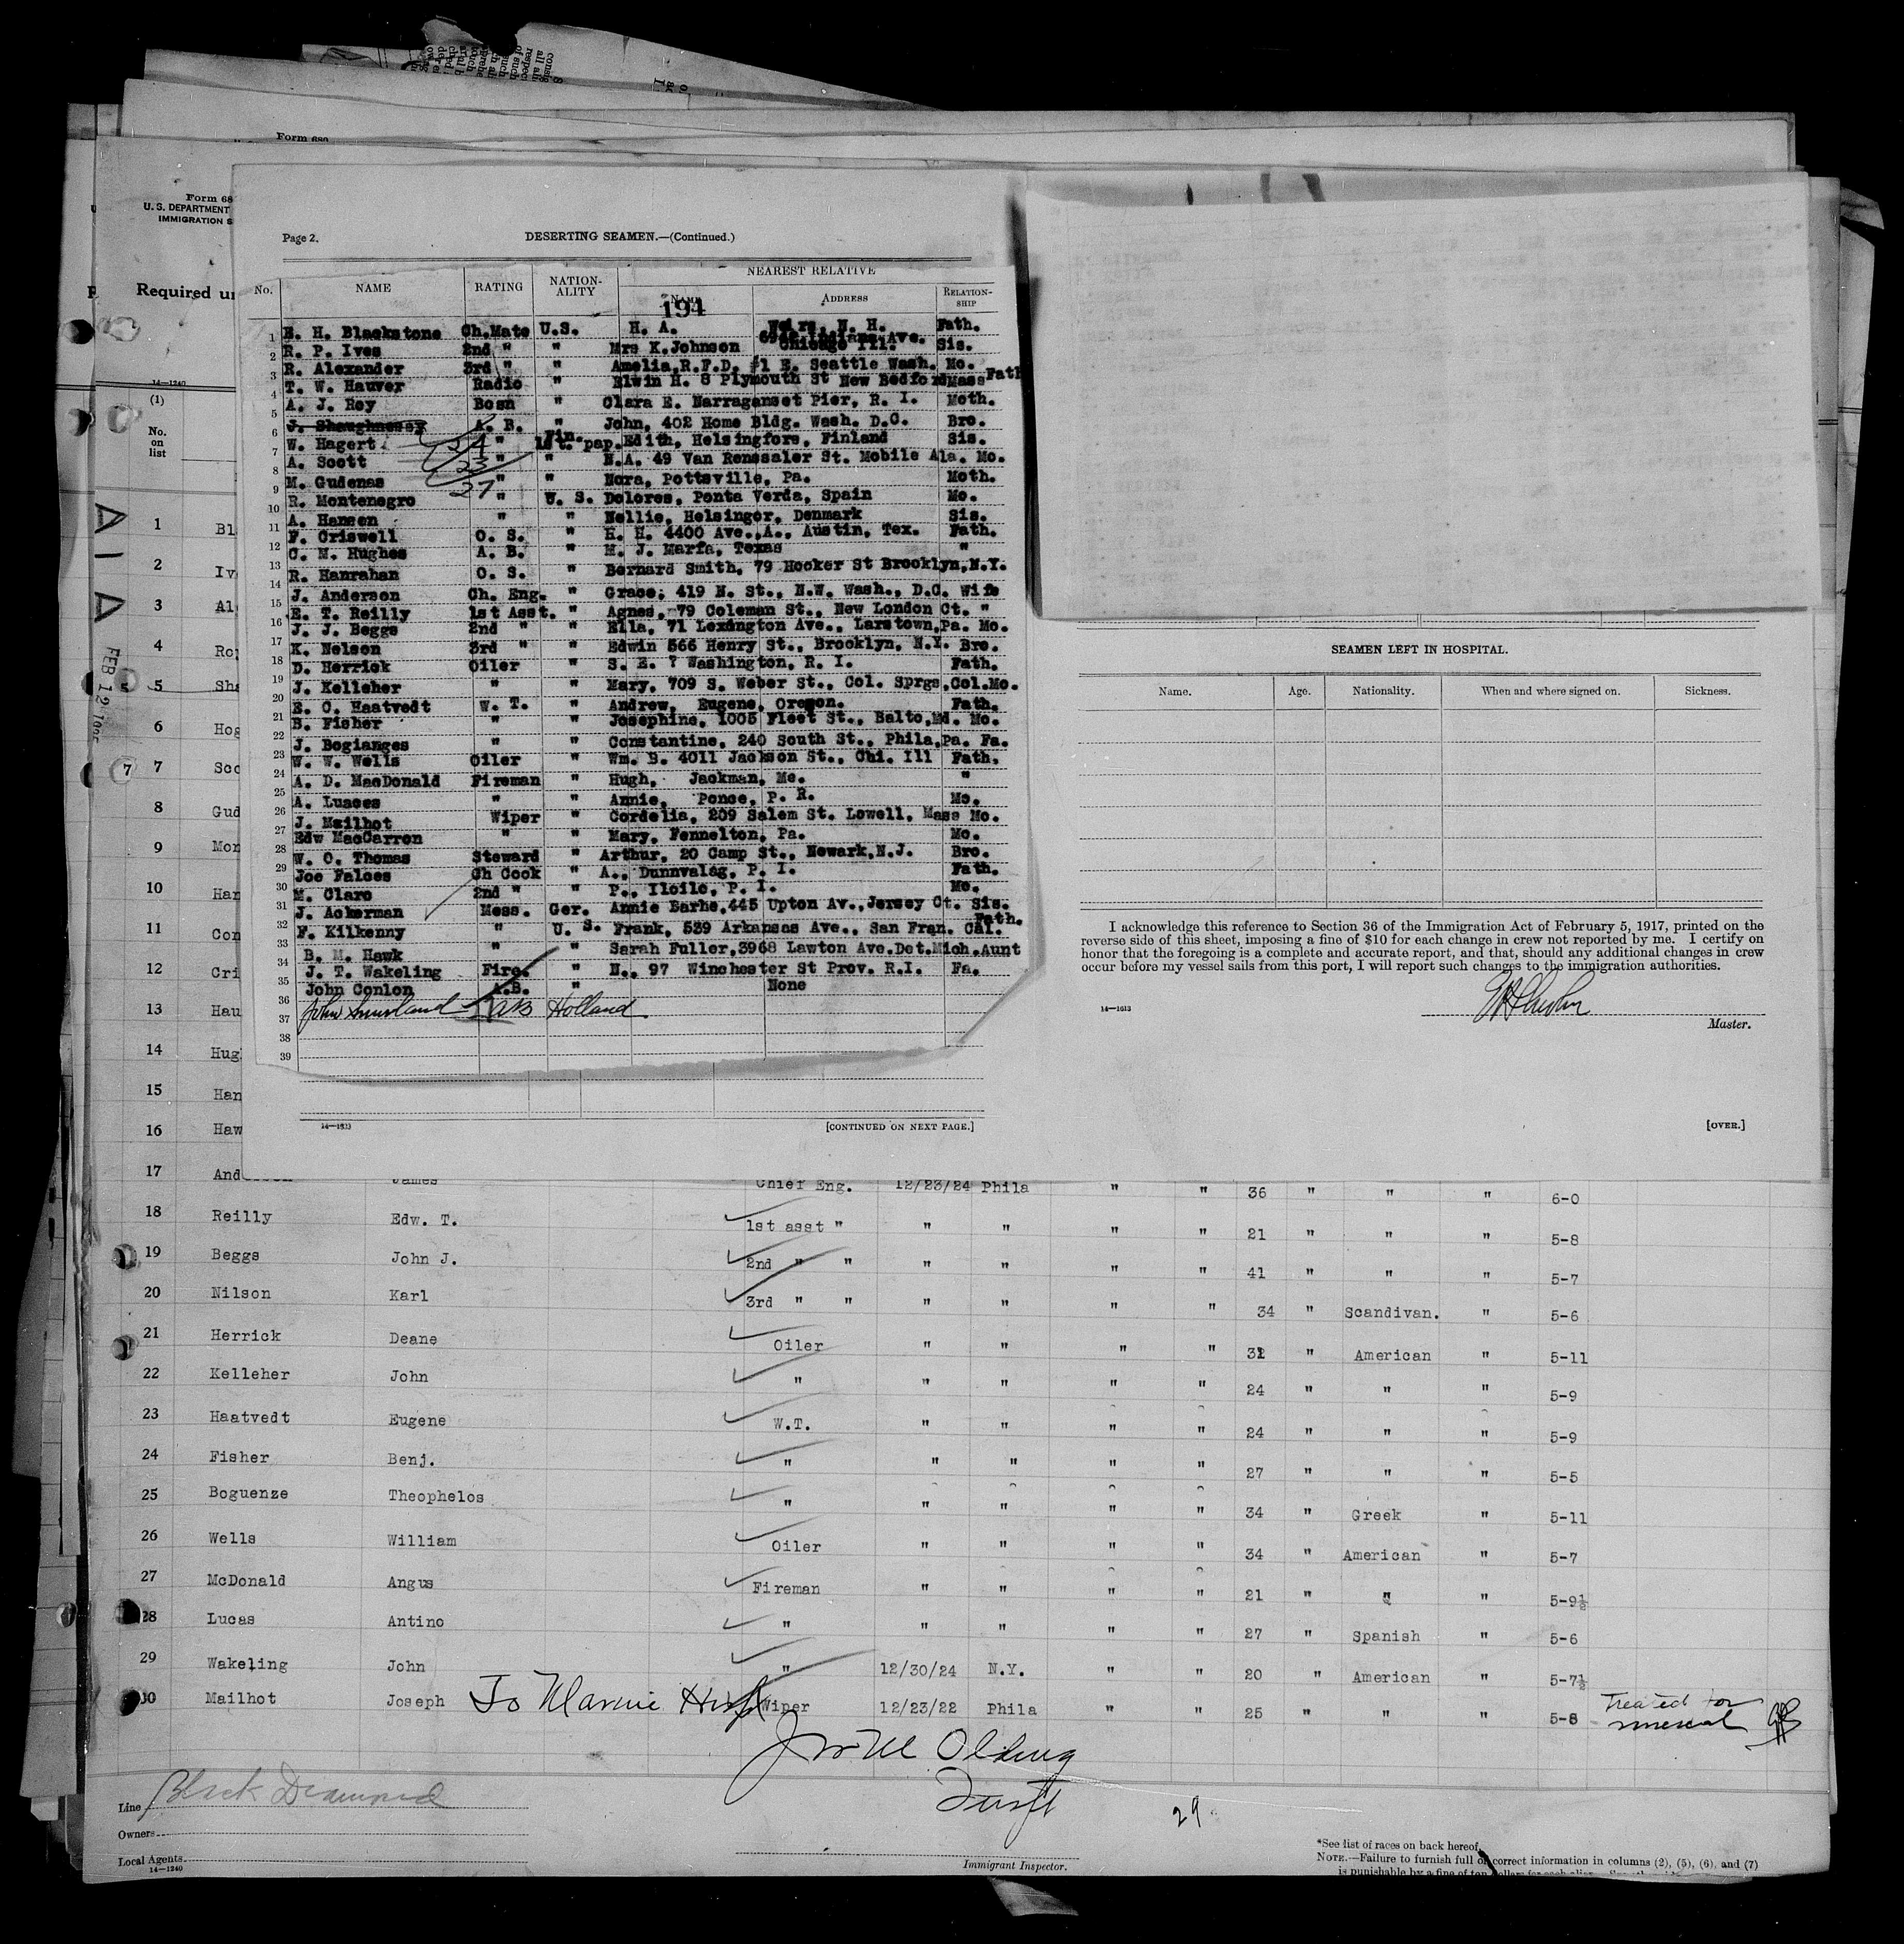 Form 689
Form 68
U. S. DEPARTMENT
IMMIGRATION S
Required un
14—1240
(1)
No.
on
list
FEB 12
Page 2.
DESERTING SEAMEN.—(Continued.)
No. NAME RATING NATION-ALITY NEAREST RELATIVE
NAME ADDRESS RELATION-SHIP
194
1 E. H. Blackstone Ch.Mate U.S. H. A. Weirs, N. H. Fath.
2 R. P. Ives 2nd " " Mrs K.Johnson Indiana Ave. Chicago Ill. Sis.
3 R. Alexander 3rd " " Amelia,R.F.D. #1 E. Seattle Wash. Mo.
4 T. W. Hauver Radio " Elwin H. 8 Plymouth St New Bedford Mass Fath
5 A. J. Roy Bosn " Clara E. Narraganset Pier, R. I. Moth.
6 J. Shaughnessy A. B. " John, 402 Home Bldg. Wash. D.C. Bro.
7 W. Hagert 24 " Fin. 1st. pap. Edith, Helsingfors, Finland Sis.
8 A. Scott 23 " " N.A. 49 Van Renssaler St. Mobile Ala. Mo.
9 M. Gudenas 27 " " Nora, Pottsville, Pa. Moth.
10 R. Montenegro " U. S. Dolores, Ponta Verda, Spain Mo.
11 A. Hansen " " Nellie, Helsinger, Denmark Sis.
12 F. Criswell O. S. " H. H. 4400 Ave.,A., Austin, Tex. Fath.
13 C. M. Hughes A. B. " M. J. Marfa, Texas "
14 R. Hanrahan O. S. " Bernard Smith, 79 Hooker St Brooklyn,N.Y.
15 J. Anderson Ch. Eng. " Grace, 419 N. St., N.W. Wash., D.C. Wife
16 E. T. Reilly 1st Asst. " Agnes, 79 Coleman St., New London Ct. "
17 J. J. Beggs 2nd " " Ella, 71 Lexington Ave., Larstown,Pa. Mo.
18 K. Nelson 3rd " " Edwin 566 Henry St., Brooklyn, N.Y. Bro.
19 D. Herrick Oiler " S. E. ? Washington, R. I. Fath.
20 J. Kelleher " " Mary, 709 S. Weber St., Col. Sprgs,Col.Mo.
21 E. C. Haatvedt W. T. " Andrew, Eugene, Oregon. Fath.
22 B. Fisher " " Josephine, 1005 Fleet St., Balto,Md. Mo.
23 J. Bogianges " " Constantine, 240 South St., Phila,Pa. Fa.
24 W. W. Wells Oiler " Wm. B. 4011 Jackson St., Chi. Ill Fath.
25 A. D. MacDonald Fireman " Hugh, Jackman, Me. "
26 A. Luaces " " Annie, Ponce, P. R. Mo.
27 J. Mailhot Wiper " Cordelia, 209 Salem St. Lowell, Mass Mo.
28 Edw MacCarron " " Mary, Fennelton, Pa. Mo.
29 W. O. Thomas Steward " Arthur, 20 Camp St., Newark,N.J. Bro.
30 Joe Falces Ch Cook " A., Dunnvalag, P. I. Fath.
31 M. Claro 2nd " " P., Iloilo, P. I. Mo.
32 J. Ackerman Mess. Ger. Annie Barhe,445 Upton Av.,Jersey Ct. Sis.
33 F. Kilkenny " U. S. Frank, 539 Arkansas Ave., San Fran. Cal. Fath.
34 B. M. Hawk " " Sarah Fuller,3968 Lawton Ave.Det.Mich.Aunt
35 J. T. Wakeling Fire. " N., 97 Winchester St Prov. R.I. Fa.
36 John Conlon A.B. " None
37 John AB Holland
38
39
14—1613
[CONTINUED ON NEXT PAGE.]
SEAMEN LEFT IN HOSPITAL.
Name. Age. Nationality. When and where signed on. Sickness.
I acknowledge this reference to Section 36 of the Immigration Act of February 5, 1917, printed on the
reverse side of this sheet, imposing a fine of $10 for each change in crew not reported by me. I certify on
honor that the foregoing is a complete and accurate report, and that, should any additional changes in crew
occur before my vessel sails from this port, I will report such changes to the immigration authorities.
14—1613
Master.
[OVER.]
1 Bl
2 Iv
3 Al
4 Ro
5 Sh
6 Hog
7 7 Sco
8 Gud
9 Mor
10 Har
11 Con
12 Cri
13 Hau
14 Hug
15 Han
16 Haw
17 And James Chief Eng. 12/23/24 Phila " " 36 " " " 6-0
18 Reilly Edw. T. 1st asst " " " " " 21 " " " 5-8
19 Beggs John J. 2nd " " " " " " 41 " " " 5-7
20 Nilson Karl 3rd " " " " " " 34 " Scandivan. " 5-6
21 Herrick Deane Oiler " " " " 32 " American " 5-11
22 Kelleher John " " " " " 24 " " " 5-9
23 Haatvedt Eugene W.T. " " " " 24 " " " 5-9
24 Fisher Benj. " " " " " 27 " " " 5-5
25 Boguenze Theophelos " " " " " 34 " Greek " 5-11
26 Wells William Oiler " " " " 34 " American " 5-7
27 McDonald Angus Fireman " " " " 21 " " " 5-9½
28 Lucas Antino " " " " " 27 " Spanish " 5-6
29 Wakeling John " 12/30/24 N.Y. " " 20 " American " 5-7½
30 Mailhot Joseph To Marine Hosp Wiper 12/23/22 Phila " " 25 " " " 5-8 Treated for
Line Black Diamond
29
Owners
Local Agents
14—1240
Immigrant Inspector.
*See list of races on back hereof.
NOTE.—Failure to furnish full or correct information in columns (2), (5), (6), and (7)
is punishable by a fine of ten dollars for each alien.